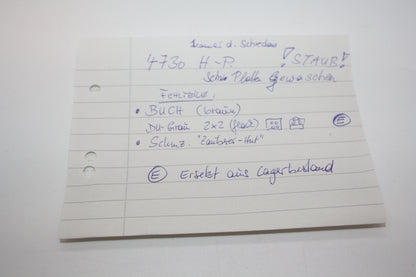 d. Schreckens
4730 H-P. ! STAUB!
Schon Platte Gewaschen
FEHLTEILE:
• BUCH (braun)
DU-Grau 2x2 (flach) E
• Schwz. "Zauberer-Hut"
E Ersetzt aus Lagerbestand